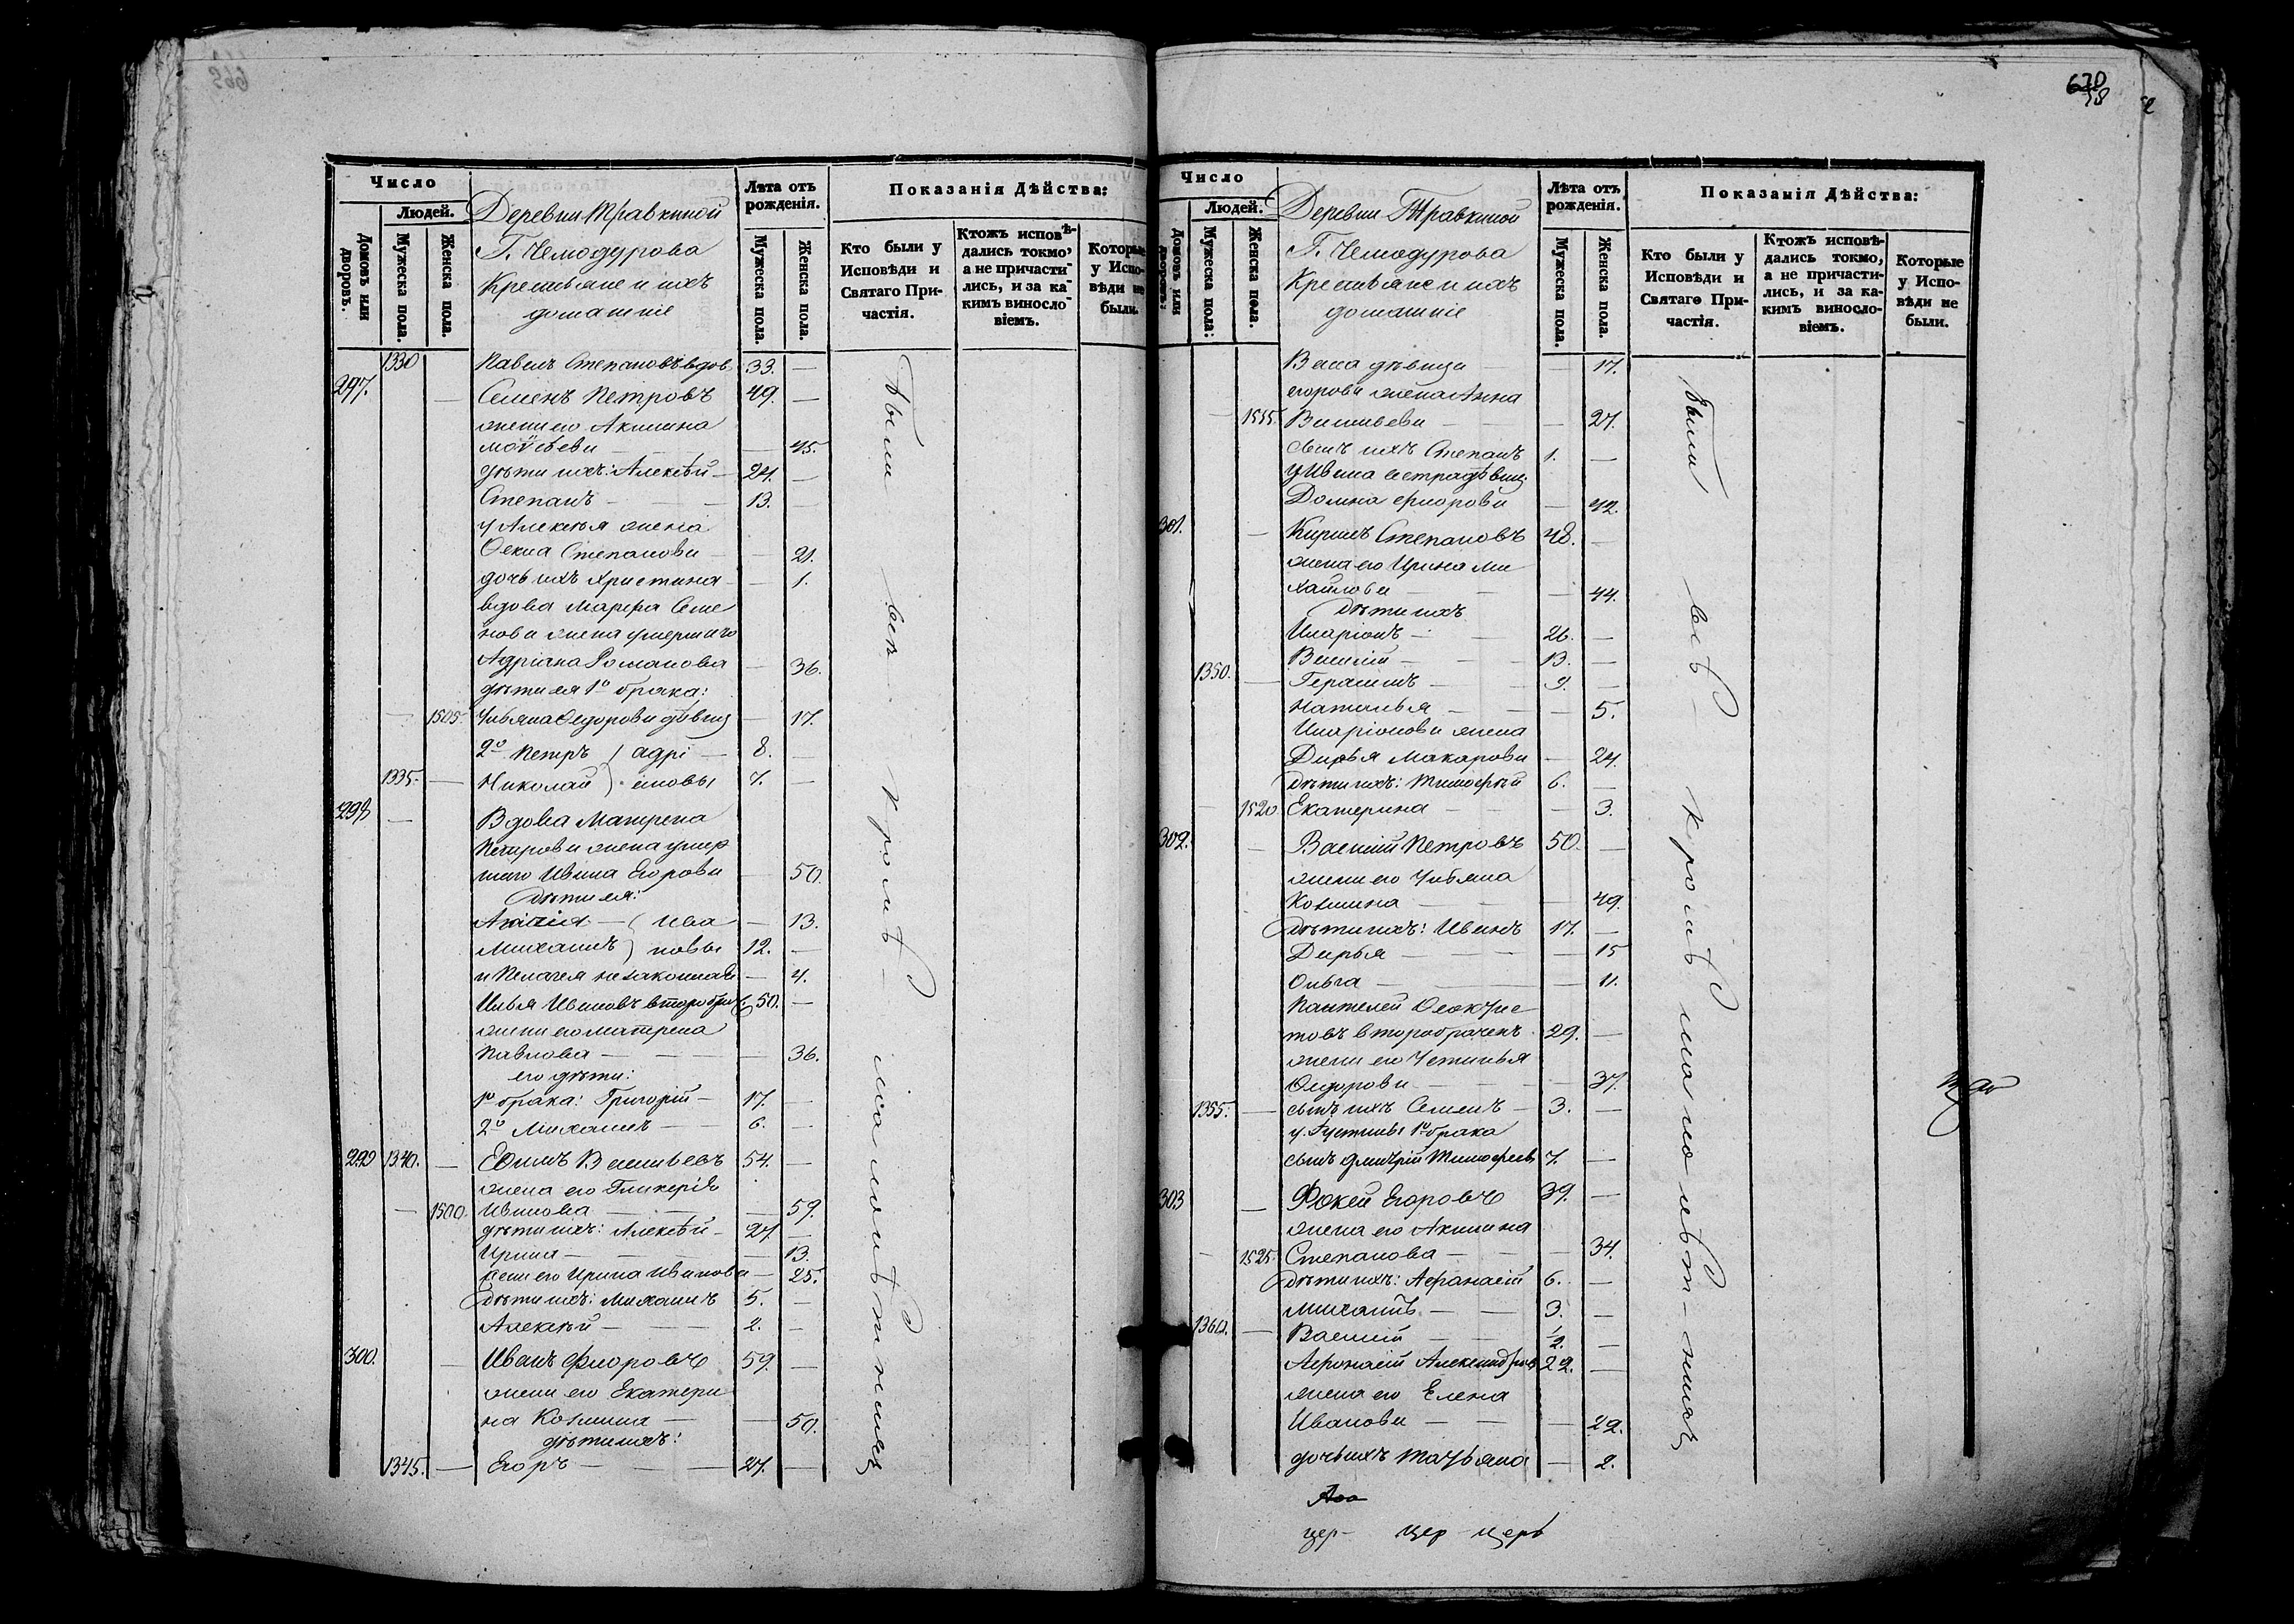 Число
Людей.
Домовъ или дворовъ.
Мужеска пола.
Женска пола.
Деревни Травкиной
Г. Чемодурова
Крестьяне и ихъ
домашніе
Лѣта отъ рожденія.
Мужеска пола.
Женска пола.
Показанія Дѣйства:
Кто были у Исповѣди и Святаго Причастія.
Ктожъ исповѣдались токмо, а не причастились, и за какимъ винословіемъ.
Которые у Исповѣди не были.
1330 Павелъ Степановъ вдов 33. —
297. — Семенъ Петровъ 49. —
жена его Акилина
Моѵсѣева — 45.
дѣти ихъ: Алексѣй — 24. —
Степанъ — 13. —
у Алексѣя жена
Ѳекла Степанова — 21.
дочь ихъ Христина — 1.
вдова Марѳа Семе
нова жена умершаго
Адріана Романова — 36.
дѣти ея 1º брака:
— 1505. Ульяна Ѳедорова дѣвица — 17.
2º Петръ ) адрі — 8. —
1335. — Николай ) ановы 7. —
298 — Вдова Матрена
Петрова жена умер
шаго Ивана Егорова — 50.
Дѣти ея:
( Ива — 13.
Михаилъ ) новы 12. —
и Пелагея незаконная — 4.
Илья Ивановъ второбрач. 50. —
жена его Матрена
Павлова — 36.
его дѣти:
1º брака: Григорій — 17. —
2º Михаилъ — 6. —
299 1340. — Ефимъ Васильевъ 54. —
жена его Гликерія
— 1500. Иванова — 59.
дѣти ихъ: Алексѣй — 27. —
Ирина — 13.
жена его Ирина Иванова — 25.
Дѣти ихъ: Михаилъ 5. —
Алексѣй — 2. —
300. — Иванъ Флоровъ 59. —
жена его Екатери
на Козмина — 50.
дѣти ихъ:
1345. — Егоръ — 27. —
были всѣ кромѣ малолѣтнихъ
670
58
Число
Людей.
Домовъ или дворовъ.
Мужеска пола.
Женска пола.
Деревни Травкиной
Г. Чемодурова
Крестьяне и ихъ
домашніе
Лѣта отъ рожденія.
Мужеска пола.
Женска пола.
Показанія Дѣйства:
Кто были у Исповѣди и Святаго Причастія.
Ктожъ исповѣдались токмо, а не причастились, и за какимъ винословіемъ.
Которые у Исповѣди не были.
Васса дѣвица — 17.
Егорова жена Анна
— 1515. Васильева — 27.
сынъ ихъ Степанъ 1. —
у Ивана сестра дѣвица
Домна Флорова — 42.
301. — Кирилъ Степановъ 48. —
жена его Ирина Ми
хайлова — 44.
Дѣти ихъ
Иларіонъ — 26. —
Василій — 13. —
1350. — Герасимъ — 9. —
Наталья — 5.
Иларіонова жена
Дарья Макарова — 24.
Дѣти ихъ: Тимофѣй 6. —
— 1520 Екатерина — 3.
302. — Василій Петровъ 50. —
жена его Ульяна
Козмина — 49.
Дѣти ихъ: Иванъ 17. —
Дарья — 15
Ольга — 11.
Пантелей Ѳеоктис
товъ второбраченъ 29. —
жена его Устинья
Ѳедорова — 37.
1355. — сынъ ихъ Семенъ — 3. —
у Густиньи 1º брака
сынъ Дмитрій Тимофеевъ 7. —
303 — Фокей Егоровъ 39. —
жена его Акилина
— 1525. Степанова — 34.
Дѣти ихъ: Афанасій 6. —
Михаилъ — 3. —
1360. — Василій — ½. —
Афонасій Александров 22. —
жена его Елена
Иванова — 22.
дочь ихъ Татьяна — 2.
были всѣ — кромѣ малолѣт-нихъ
цер- цер-церѣ